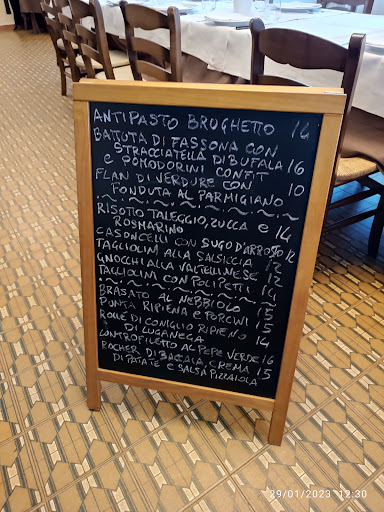 ANTIPASTO BRUGHETTO 14
BATTUTA DI FASSONA CON
STRACCIATELLA DI BUFALA 16
E POMODORINI CONFIT
FLAN DI VERDURE CON 10
FONDUTA AL PARMIGIANO
RISOTTO TALEGGIO, ZUCCA E 14
ROSMARINO
CASONCELLI CON SUGO D'ARROSTO 12
TAGLIOLINI ALLA SALSICCIA 12
GNOCCHI ALLA VALTELLINESE 12
TAGLIOLINI CON POLIPETTI 14
BRASATO AL NEBBIOLO 15
PUNTA RIPIENA E PORCINI 15
ROLLÈ DI CONIGLIO RIPIENO 15
DI LUGANEGA 14
CONTROFILETTO AL PEPE VERDE 16
ROCHER DI BACCALÀ, CREMA 15
DI PATATE E SALSA PIZZAIOLA
29/01/2023 12:30